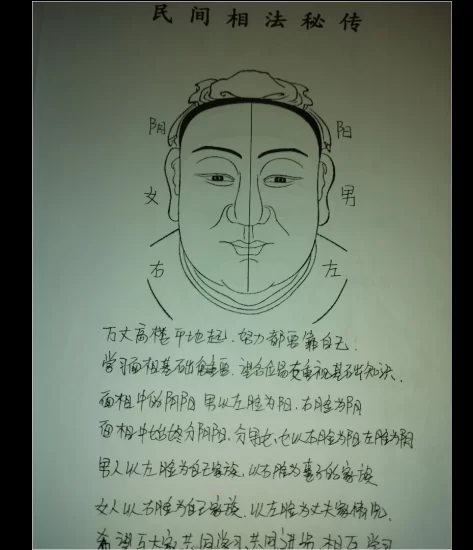 民间相法秘传
阴 阳
女 男
右 左
万丈高楼平地起，努力都要靠自己.
学习面相基础重要，望各位易友重视基础知识.
面相中的阴阳 男以左脸为阳，右脸为阴
面相中始终分阴阳，分男女，女以右脸为阳左脸为阴
男人以左脸为自己家族，以右脸为妻子的家族
女人以右脸为自己家族，以左脸为丈夫家情况.
希望与大家共同学习，共同进步 相互学习